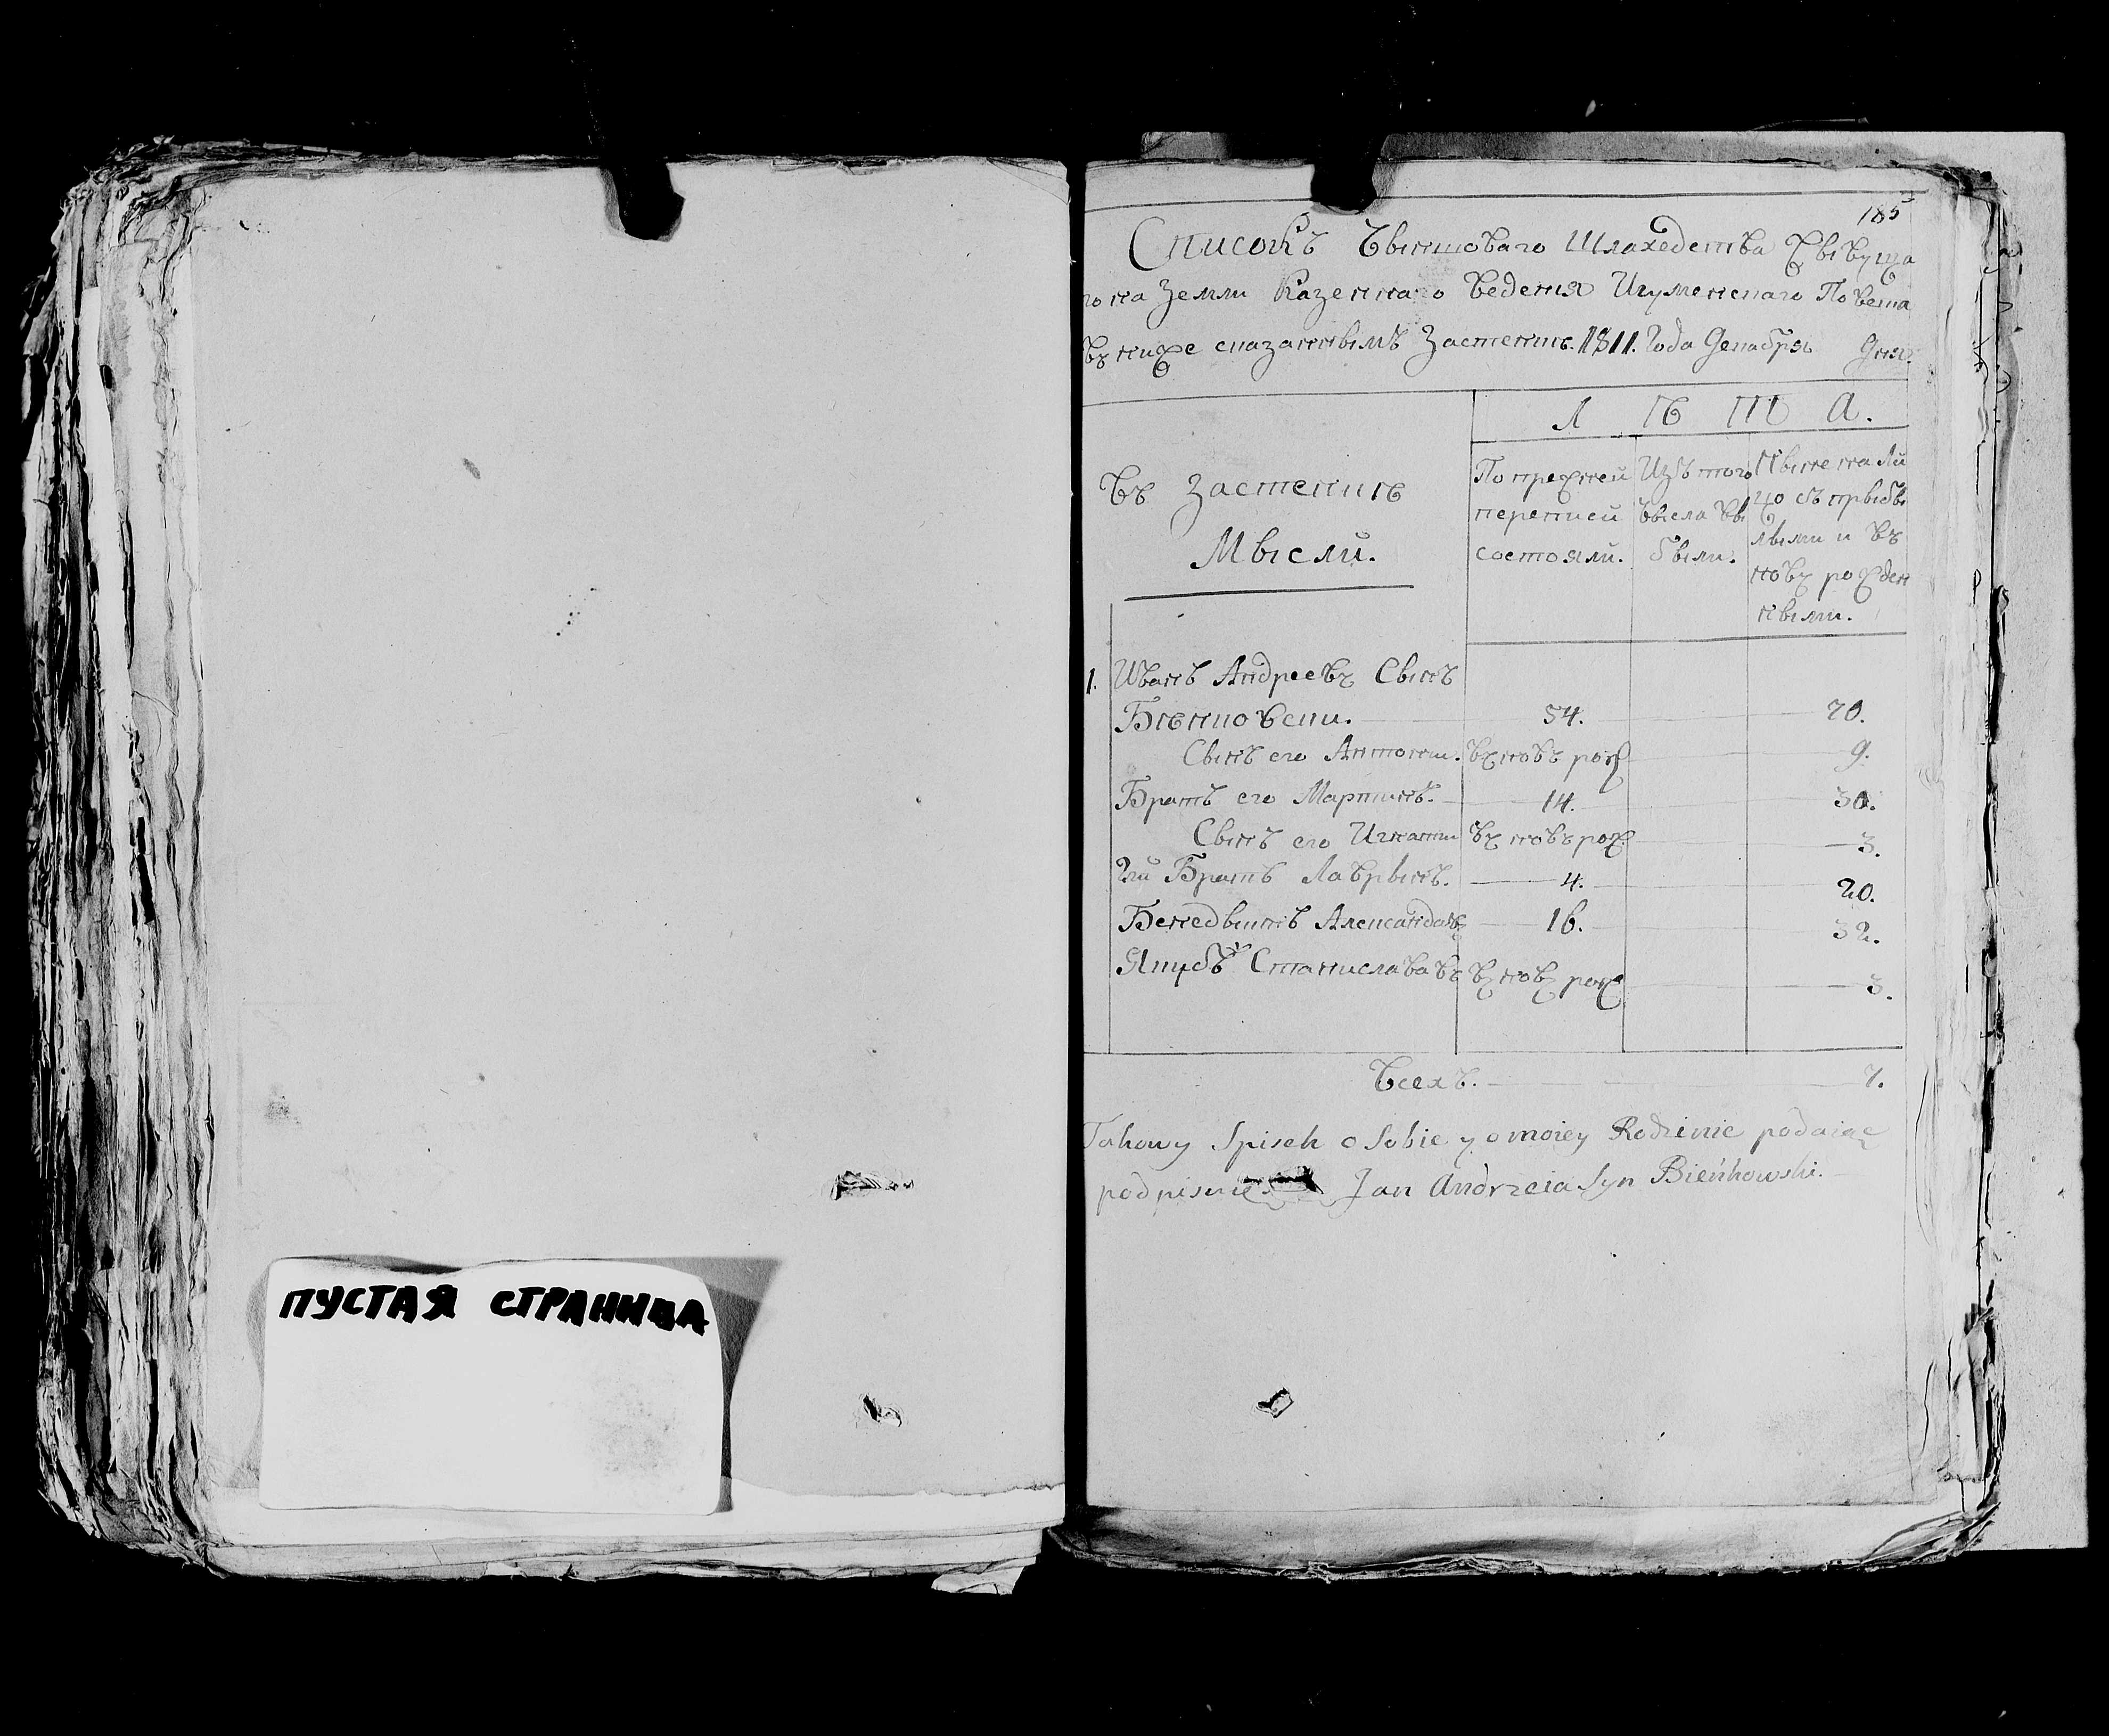 ПУСТАЯ СТРАНИЦА
185
Списокъ Чыншоваго Шляхедства Живуща
го на Земли Казеннаго Ведения Игуменскаго Повета
въ ниже сказаннымъ Застенке. 1811. Года Декабря Дня.
Л Ѣ Т А.
Въ Застенкѣ
Мысли.
По прежней
переписи
состояли.
Изъ того
Числа Вы
были.
Ныне на Ли
цо съ прыбы
лыми и въ
новъ рожден
ными.
1. Иванъ Андреевъ Сынъ
Бѣнковски. 54. 70.
Сынъ его Антони. въновъ рож 9.
Братъ его Мартинъ. 14. 30.
Сынъ его Игнати въ новъ рож. 3.
2й Братъ Лаврынъ. 4. 20.
Бенедыктъ Александовъ 16. 32.
Якубъ Станиславовъ въновъ рож 3.
Всехъ. 7.
Takowy Spisek o Sobie y o moiey Rodzinie podaiąc
podpisuię. Jan Andrzeia Syn Bieńkowski.